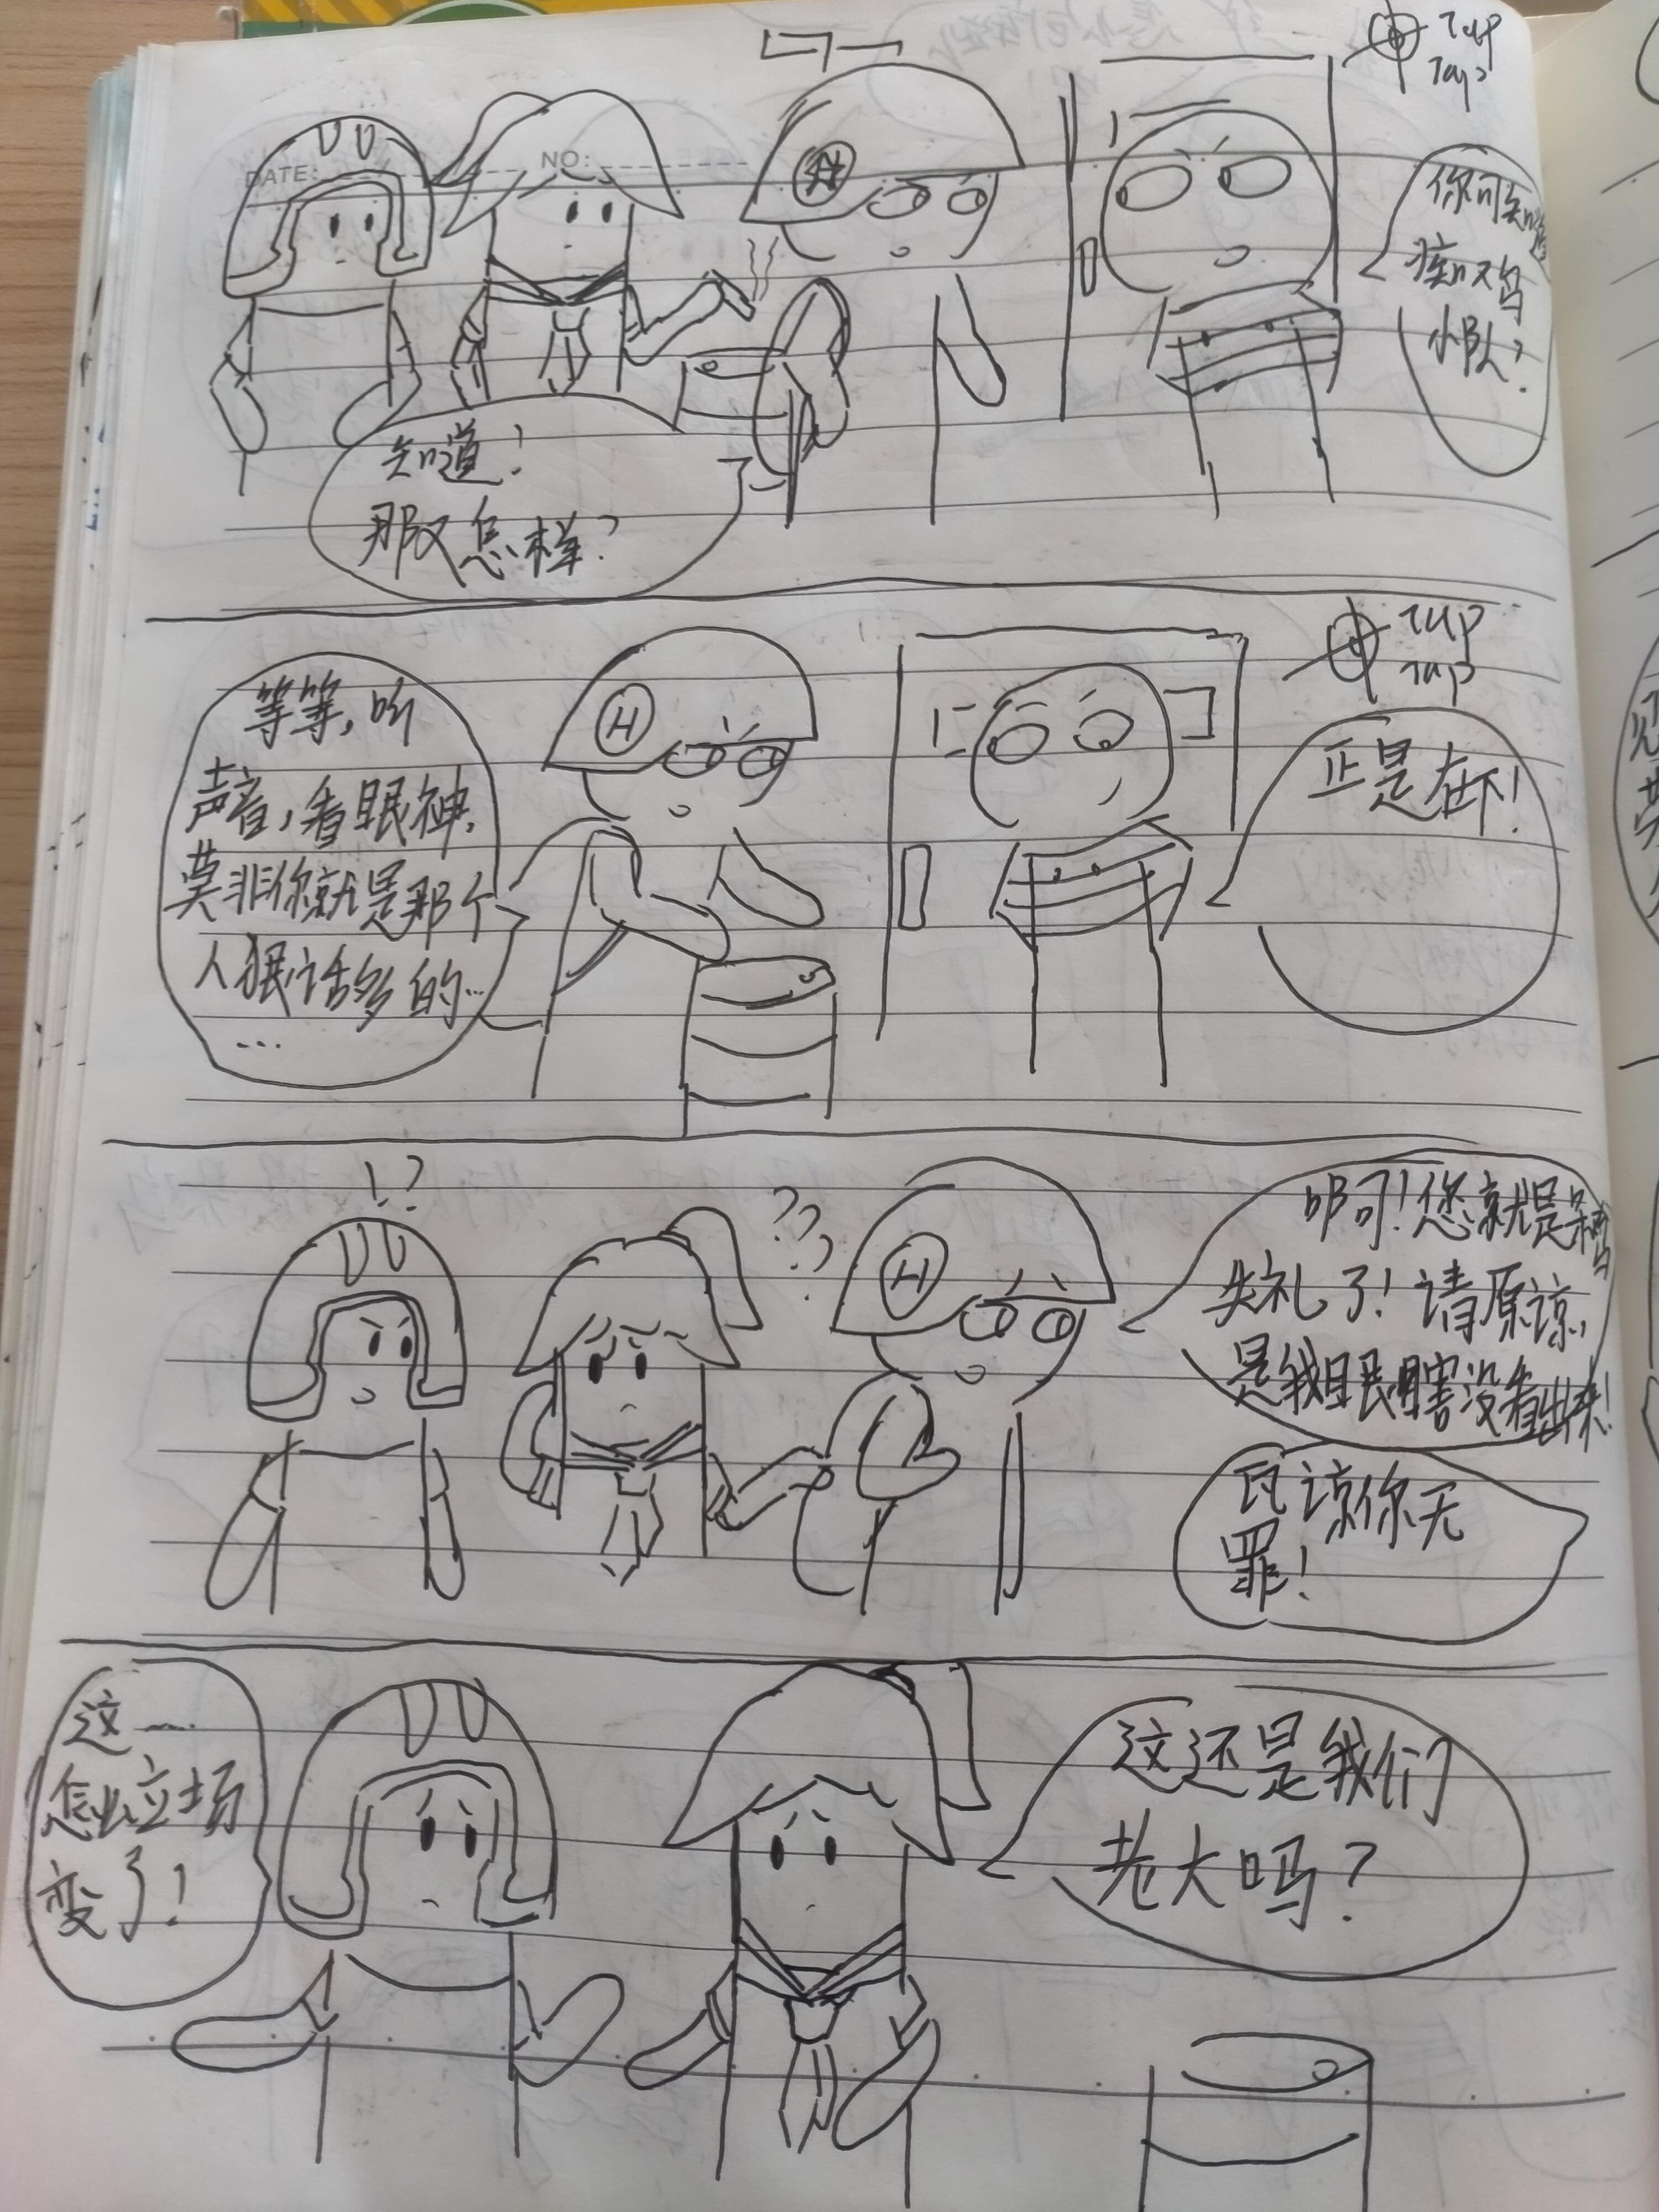 DATE:
NO:
Tap
Tap
你可知
小队？
知道！
那又怎样？
Tap
Tap
等等，听
声音，看眼神，
莫非你就是那个
人狠话多的…
…
正是在下！
H
!?
??
H
啊！您就是
失礼了！请原谅，
是我眼瞎没看出来！
谅你无
罪！
这一
怎么立场
变了！
这还是我们
老大吗？